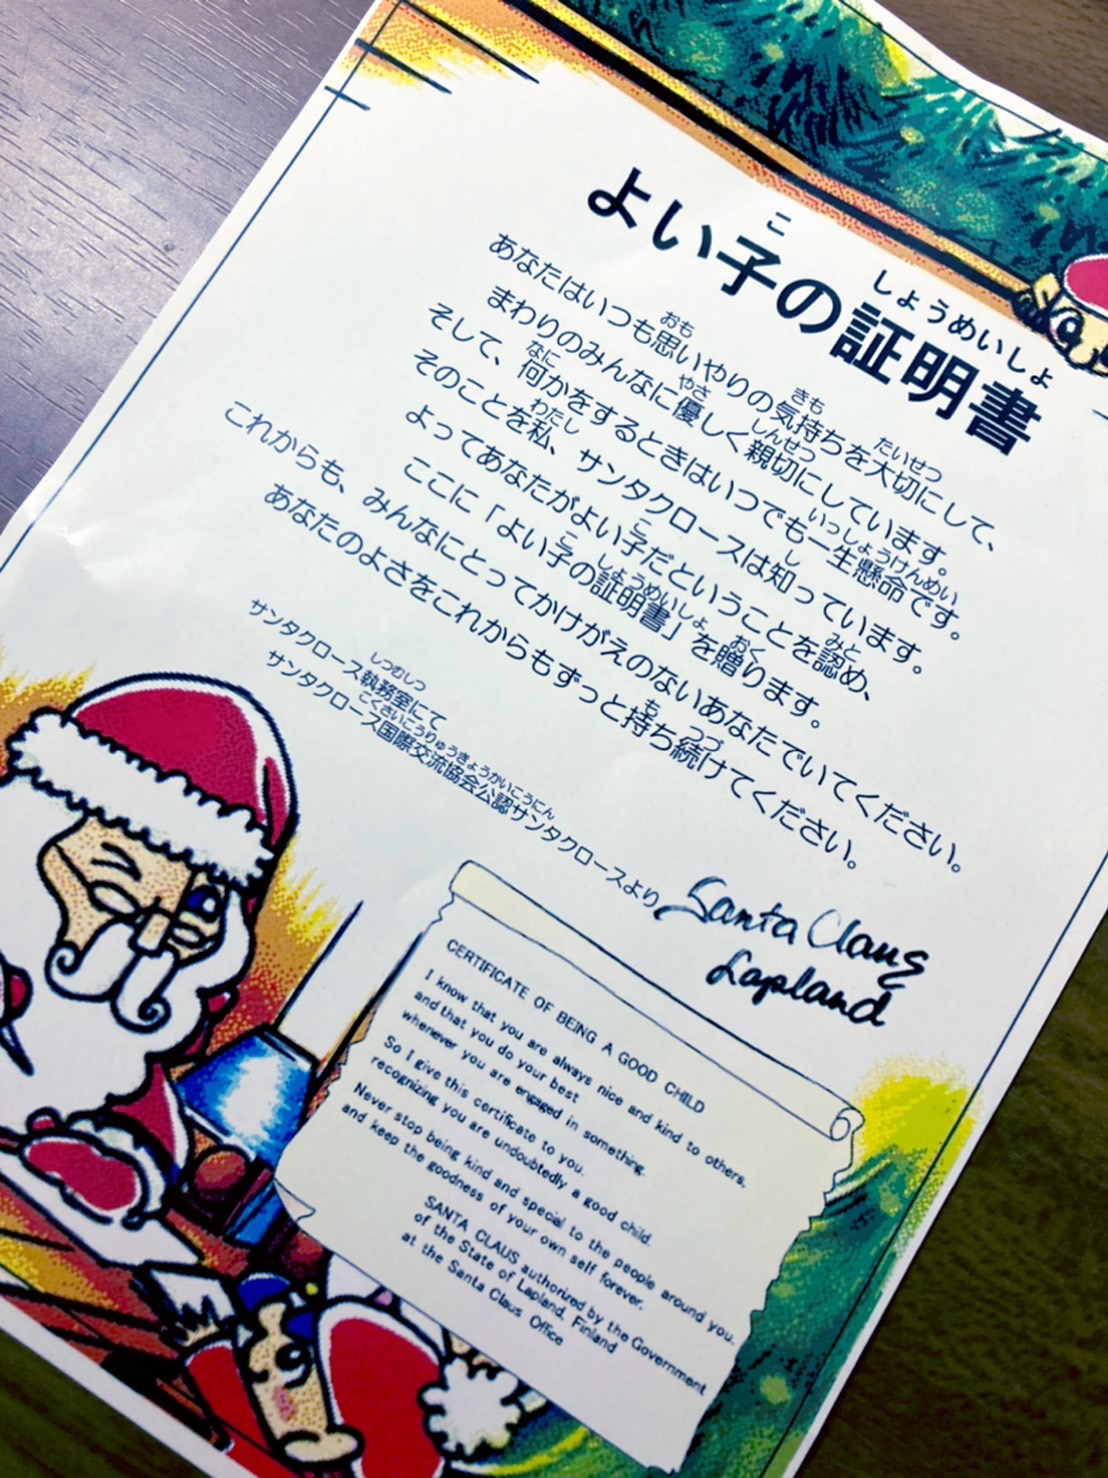 よい子の証明書
あなたはいつも思いやりの気持ちを大切にして、
まわりのみんなに優しく親切にしています。
そして、何かをするときはいつでも一生懸命です。
そのことを私、サンタクロースは知っています。
よってあなたがよい子だということを認め、
ここに「よい子の証明書」を贈ります。
これからも、みんなにとってかけがえのないあなたでいてください。
あなたのよさをこれからもずっと持ち続けてください。
サンタクロース執務室にて
サンタクロース国際交流協会公認サンタクロースより
Santa Claus
Lapland
CERTIFICATE OF BEING A GOOD CHILD
I know that you are always nice and kind to others,
and that you do your best
whenever you are engaged in something.
So I give this certificate to you.
recognizing you are undoubtedly a good child.
Never stop being kind and special to the people around you.
and keep the goodness of your own self forever.
SANTA CLAUS authorized by the Government
of the State of Lapland, Finland
at the Santa Claus Office